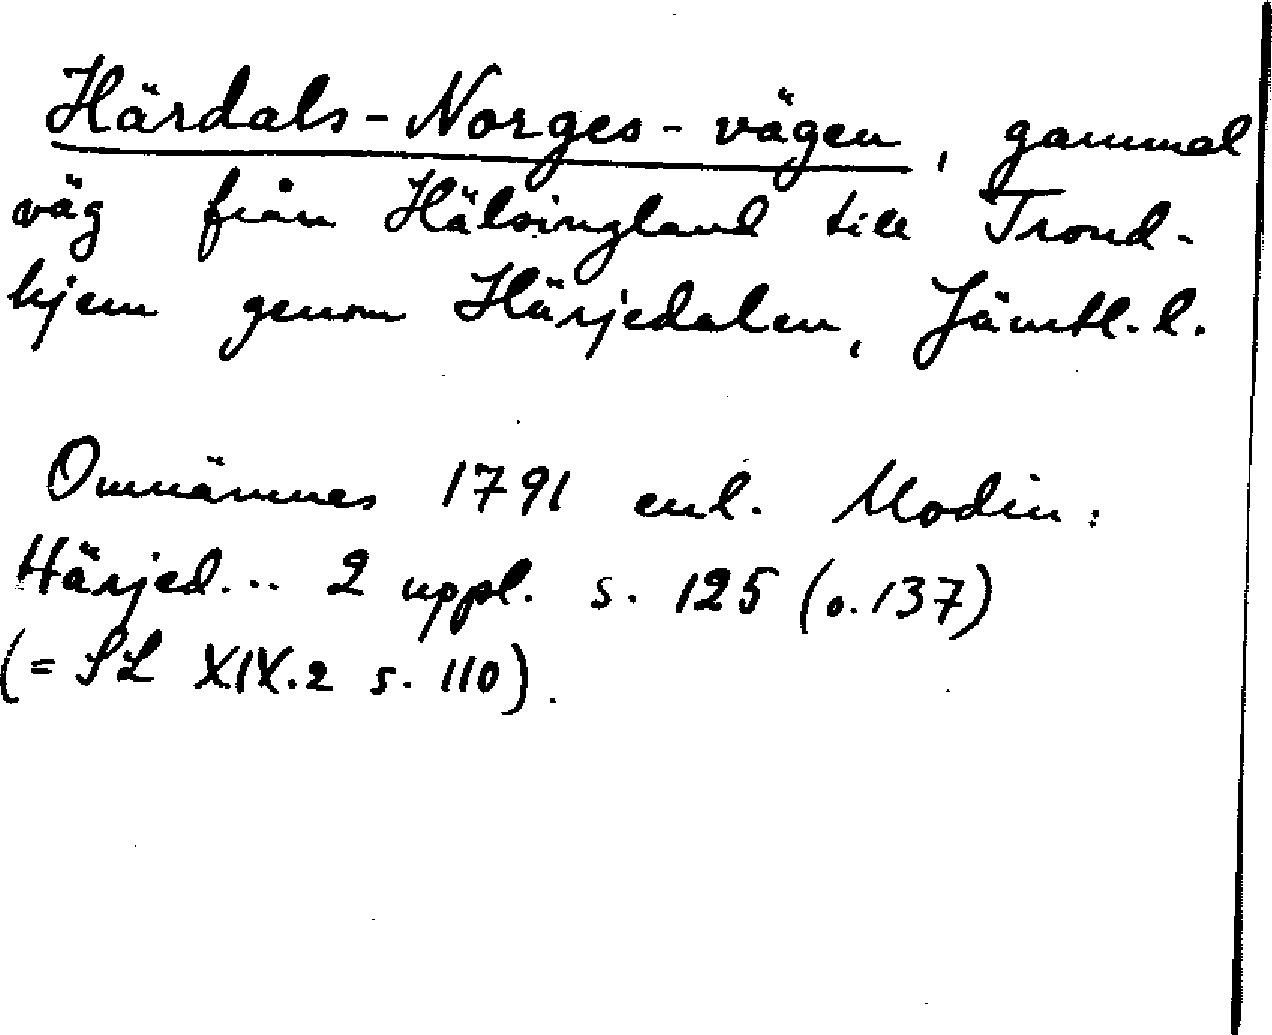 Härdals-Norges-vägen, gammal
väg från Hälsingland till Trond-
hjem genom Härjedalen, Jämtl. l.
Omnämnes 1791 enl. Modin:
Härjed... 2 uppl. s. 125 (o. 137)
(= SL XIX.2 s. 110).